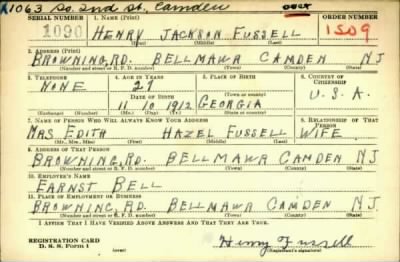 1063 So. 2nd St. Camden over
SERIAL NUMBER 1. NAME (Print) ORDER NUMBER
1090 HENRY JACKSON FUSSELL 1509
(First) (Middle) (Last)
2. ADDRESS (Print)
BROWNING, RD. BELLMAWR CAMDEN NJ
(Number and street or R. F. D. number) (Town) (County) (State)
3. TELEPHONE 4. AGE IN YEARS 5. PLACE OF BIRTH 6. COUNTRY OF CITIZENSHIP
NONE 27
DATE OF BIRTH (Town or county)
11 10 1912 GEORGIA U.S.A.
(Exchange) (Number) (Mo.) (Day) (Yr.) (State or country)
7. NAME OF PERSON WHO WILL ALWAYS KNOW YOUR ADDRESS 8. RELATIONSHIP OF THAT PERSON
MRS EDITH HAZEL FUSSELL WIFE
(Mr., Mrs., Miss) (First) (Middle) (Last)
9. ADDRESS OF THAT PERSON
BROWNING, RD. BELLMAWR CAMDEN NJ
(Number and street or R. F. D. number) (Town) (County) (State)
10. EMPLOYER'S NAME
EARNST BELL
11. PLACE OF EMPLOYMENT OR BUSINESS
BROWNING, RD. BELLMAWR CAMDEN NJ.
(Number and street or R. F. D. number) (Town) (County) (State)
I AFFIRM THAT I HAVE VERIFIED ABOVE ANSWERS AND THAT THEY ARE TRUE.
REGISTRATION CARD
D. S. S. Form 1 (over) Henry J Fussell
(Registrant's signature)